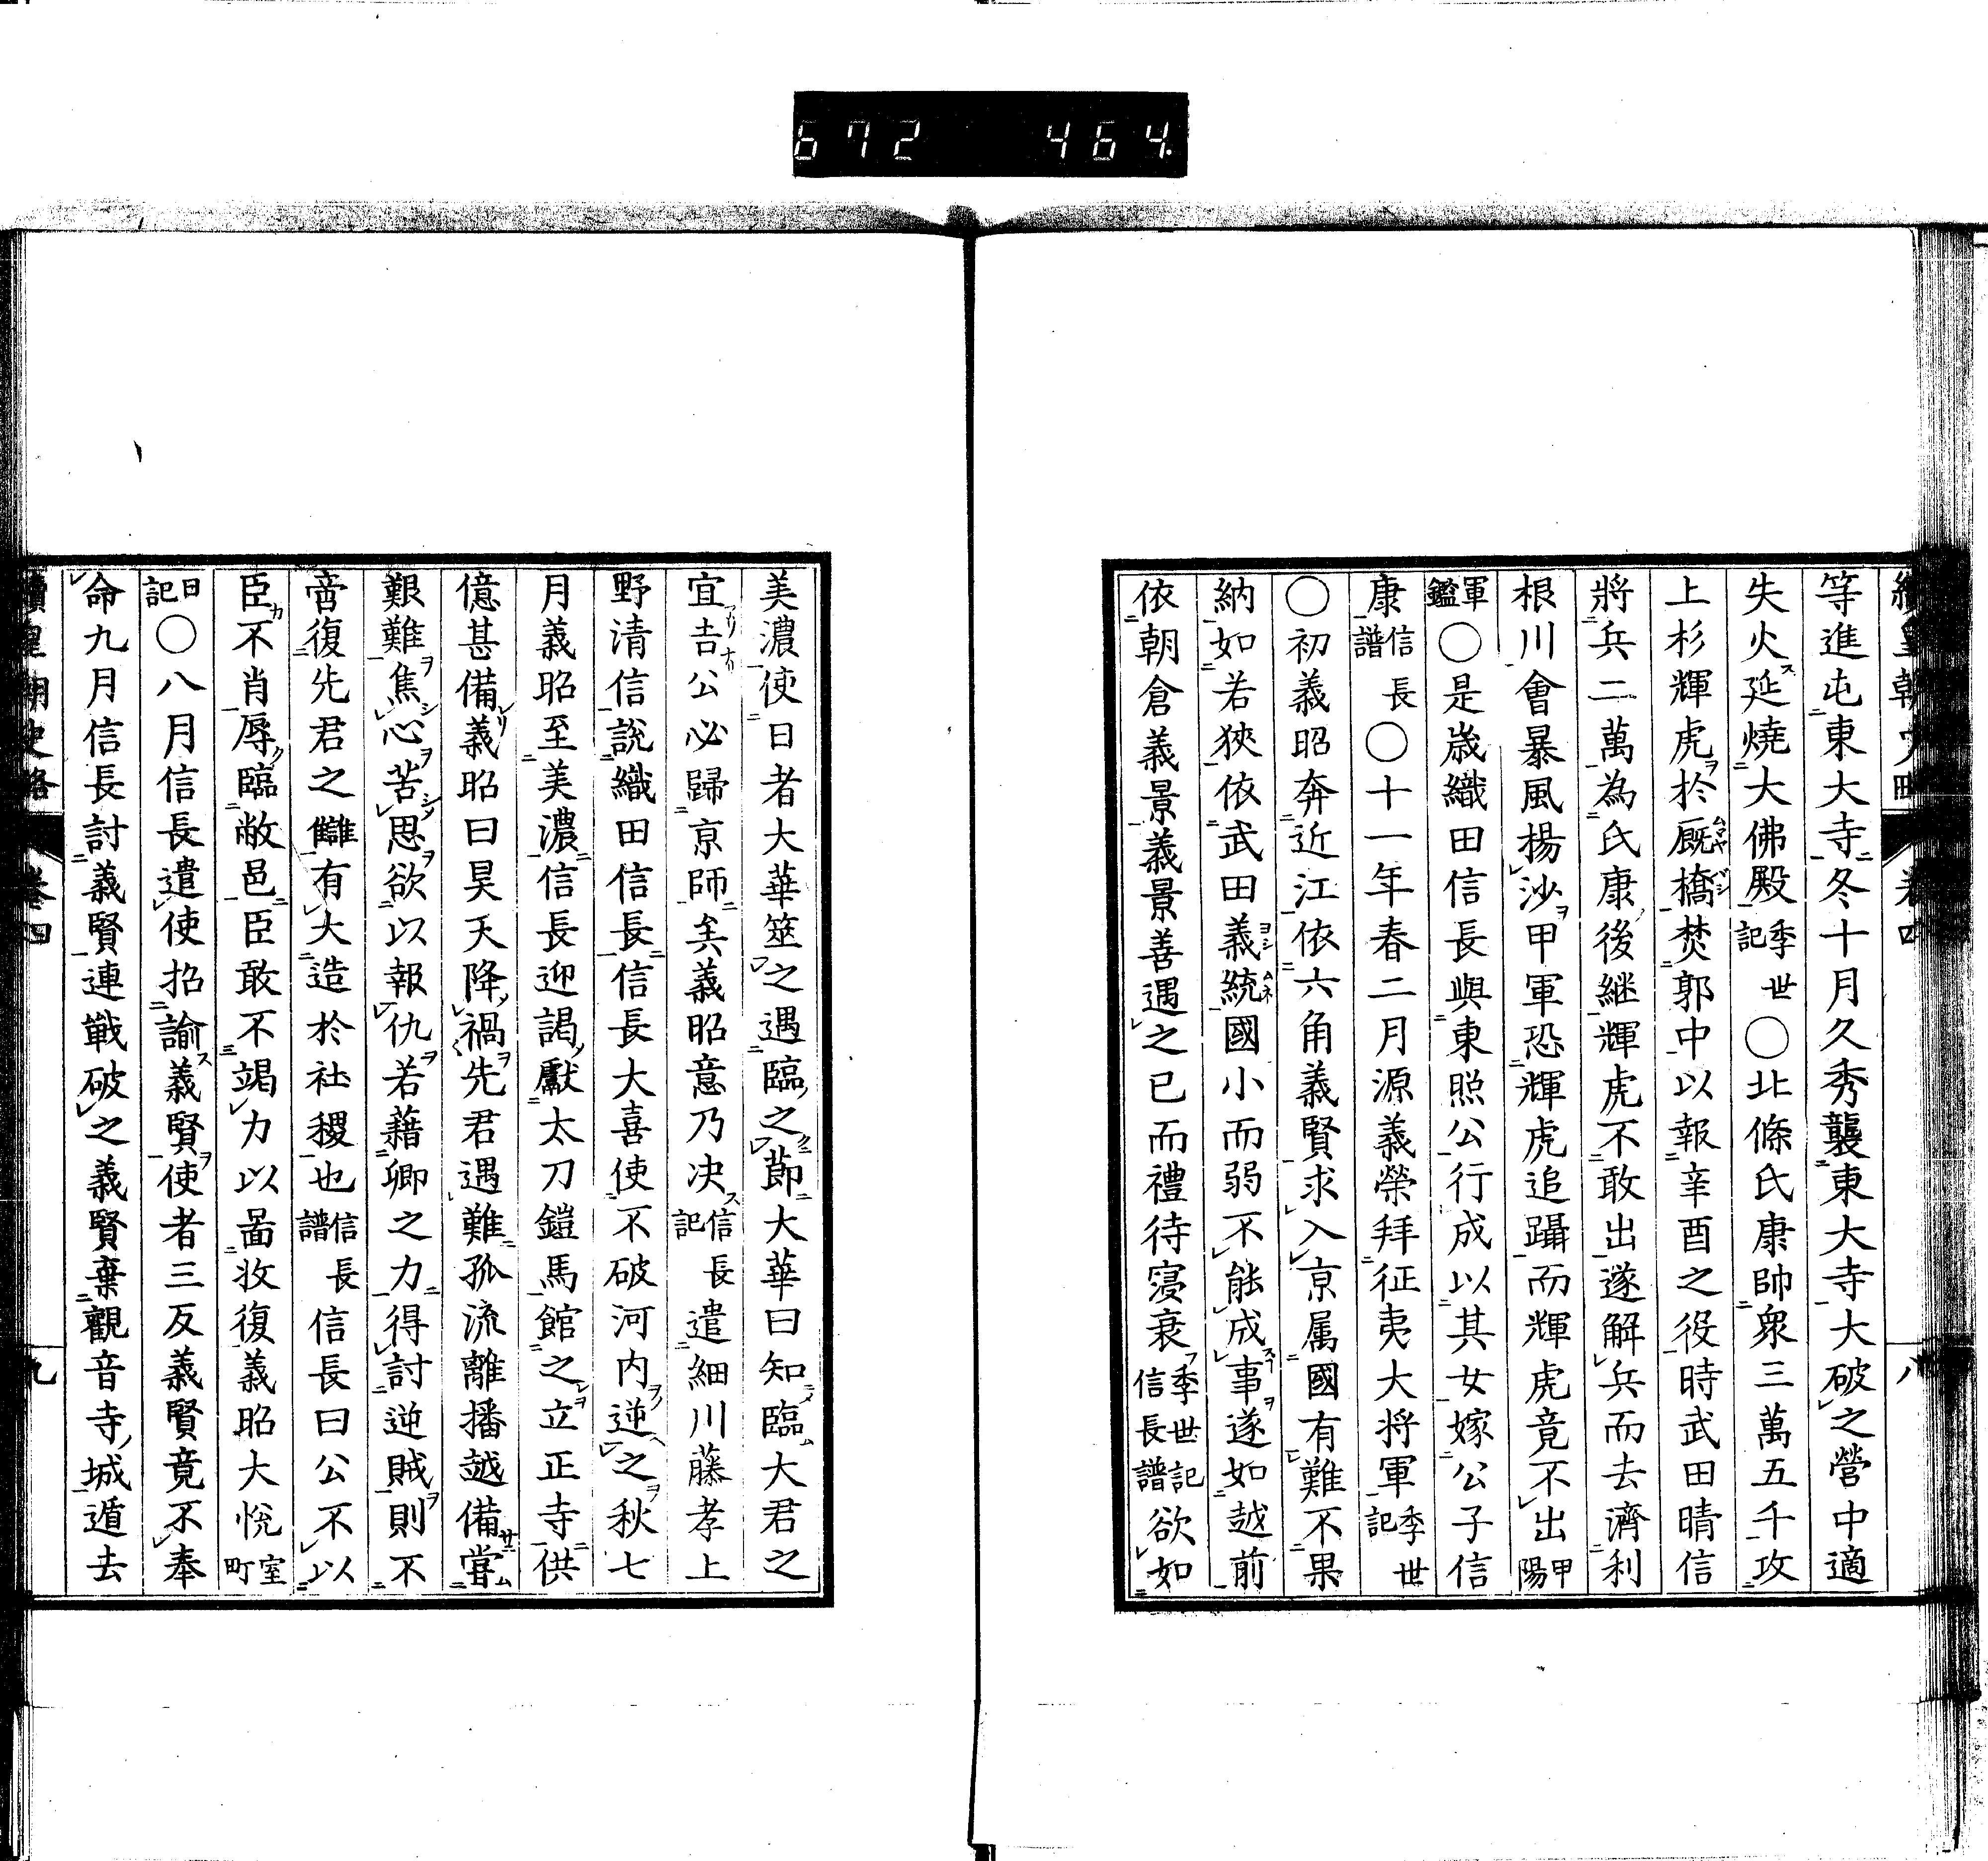 672 464.
續皇朝史略 卷四 八
等進屯東大寺冬十月久秀襲東大寺大破之營中適
失火延燒大佛殿季世記〇北條氏康帥衆三萬五千攻
上杉輝虎於厩橋焚郭中以報辛酉之役時武田晴信
將兵二萬為氏康後継輝虎不敢出遂解兵而去濟利
根川會暴風揚沙甲軍恐輝虎追躡而輝虎竟不出甲陽
軍鑑〇是歳織田信長與東照公行成以其女嫁公子信
康信長譜〇十一年春二月源義榮拜征夷大将軍季世記
〇初義昭奔近江依六角義賢求入京属國有難不果
納如若狹依武田義統國小而弱不能成事遂如越前
依朝倉義景義景善遇之已而禮待寖衰季世記信長譜欲如
美濃使日者大華筮之遇臨之節大華曰知臨大君之
宜吉公必歸京師矣義昭意乃决信長記遣細川藤孝上
野清信說織田信長信長大喜使不破河内逆之秋七
月義昭至美濃信長迎謁獻太刀鎧馬館之立正寺供
億甚備義昭曰昊天降禍先君遇難孤流離播越備嘗
艱難焦心苦思欲以報仇若藉卿之力得討逆賊則不
啻復先君之讎有大造於社稷也信長譜信長曰公不以
臣不肖辱臨敝邑臣敢不竭力以啚收復義昭大悅室町
日記〇八月信長遣使招諭義賢使者三反義賢竟不奉
命九月信長討義賢連戰破之義賢棄觀音寺城遁去
續皇朝史略 卷四 九